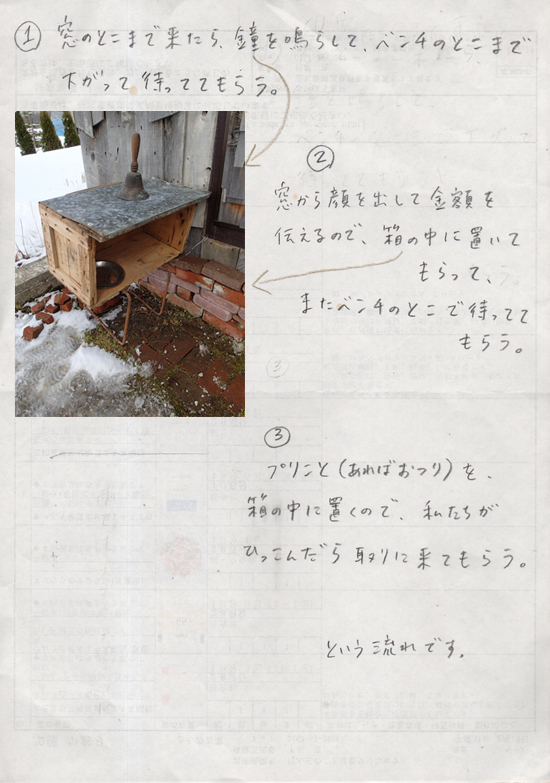 ① 窓のとこまで来たら、鐘を鳴らして、ベンチのとこまで
下がって待っててもらう。
②
窓から顔を出して金額を
伝えるので、箱の中に置いて
もらって、
またベンチのとこで待ってて
もらう。
③
プリンと(あればおつり)を、
箱の中に置くので、私たちが
ひっこんだら取りに来てもらう。
という流れです。